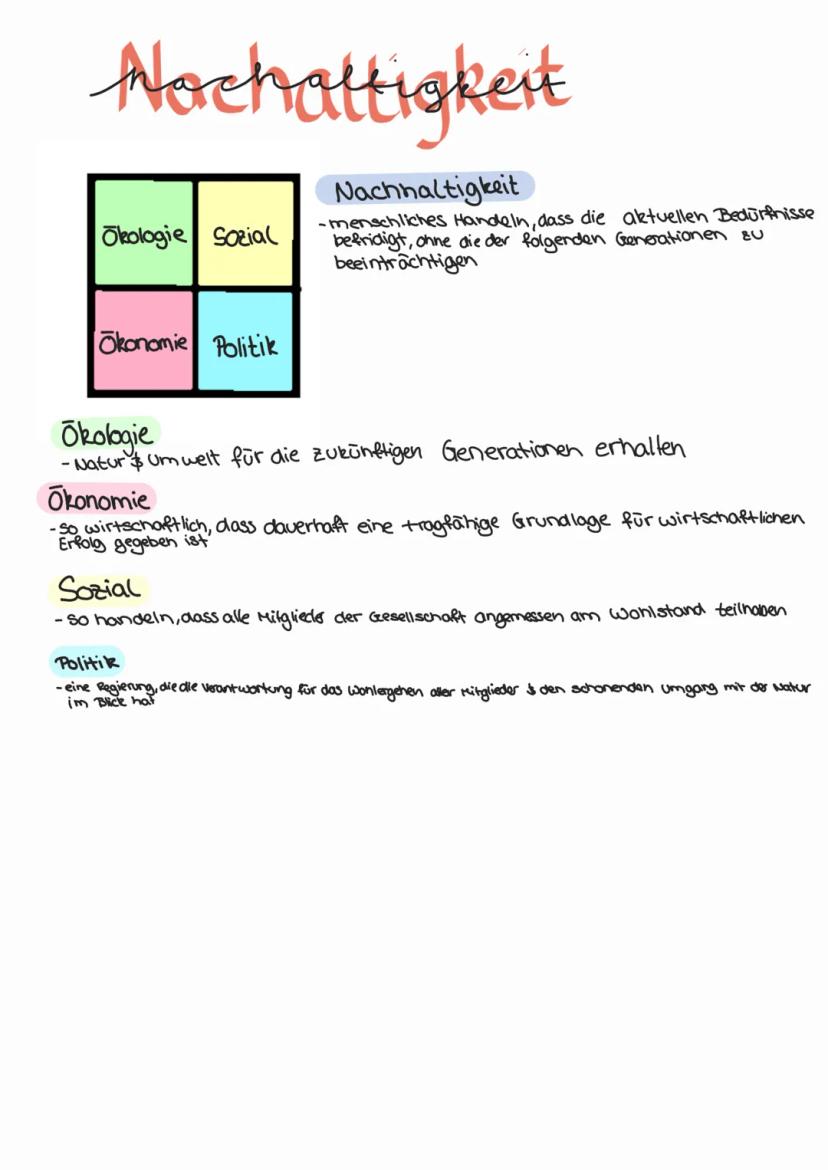 Nachaltigkeit
Nachaltigkeit
Ökologie Sozial
Ökonomie Politik
Nachhaltigkeit
- menschliches Handeln, dass die aktuellen Bedürfnisse
befridigt, ohne die der folgenden Generationen zu
beeinträchtigen
Ökologie
- Natur & Umwelt für die zukünftigen Generationen erhalten
Ökonomie
- so wirtschaftlich, dass dauerhaft eine tragfähige Grundlage für wirtschaftlichen
Erfolg gegeben ist
Sozial
- so handeln, dass alle Mitglieder der Gesellschaft angemessen am Wohlstand teilhaben
Politik
- eine Regierung, die die Verantwortung für das Wohlergehen aller Mitglieder & den schonenden Umgang mit der Natur
im Blick hat